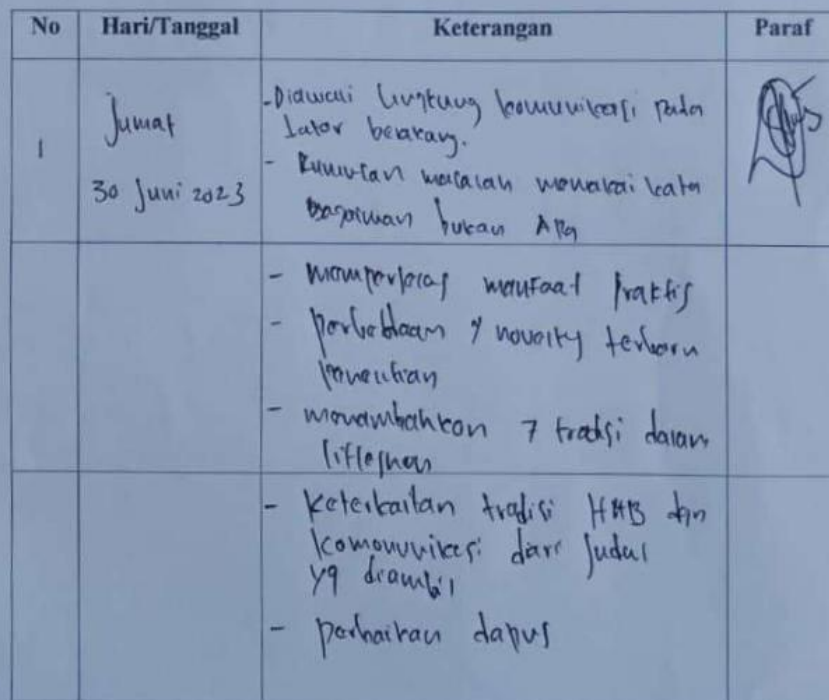 No Hari/Tanggal Keterangan Paraf
1 Jumat 30 Juni 2023
- Diawali lingkung komunikasi pada
latar belakang.
- Rumusan masalah memakai kata
bagaiman bukan Apa
- memperjelas manfaat Praktis
- perbedaan novelty terbaru
penelitian
- menambahkan 7 tradisi dalam
littlejhon
- Keterkaitan tradisi dan
komonunikasi dari Judul
yg diambil
- perbaikan dapus